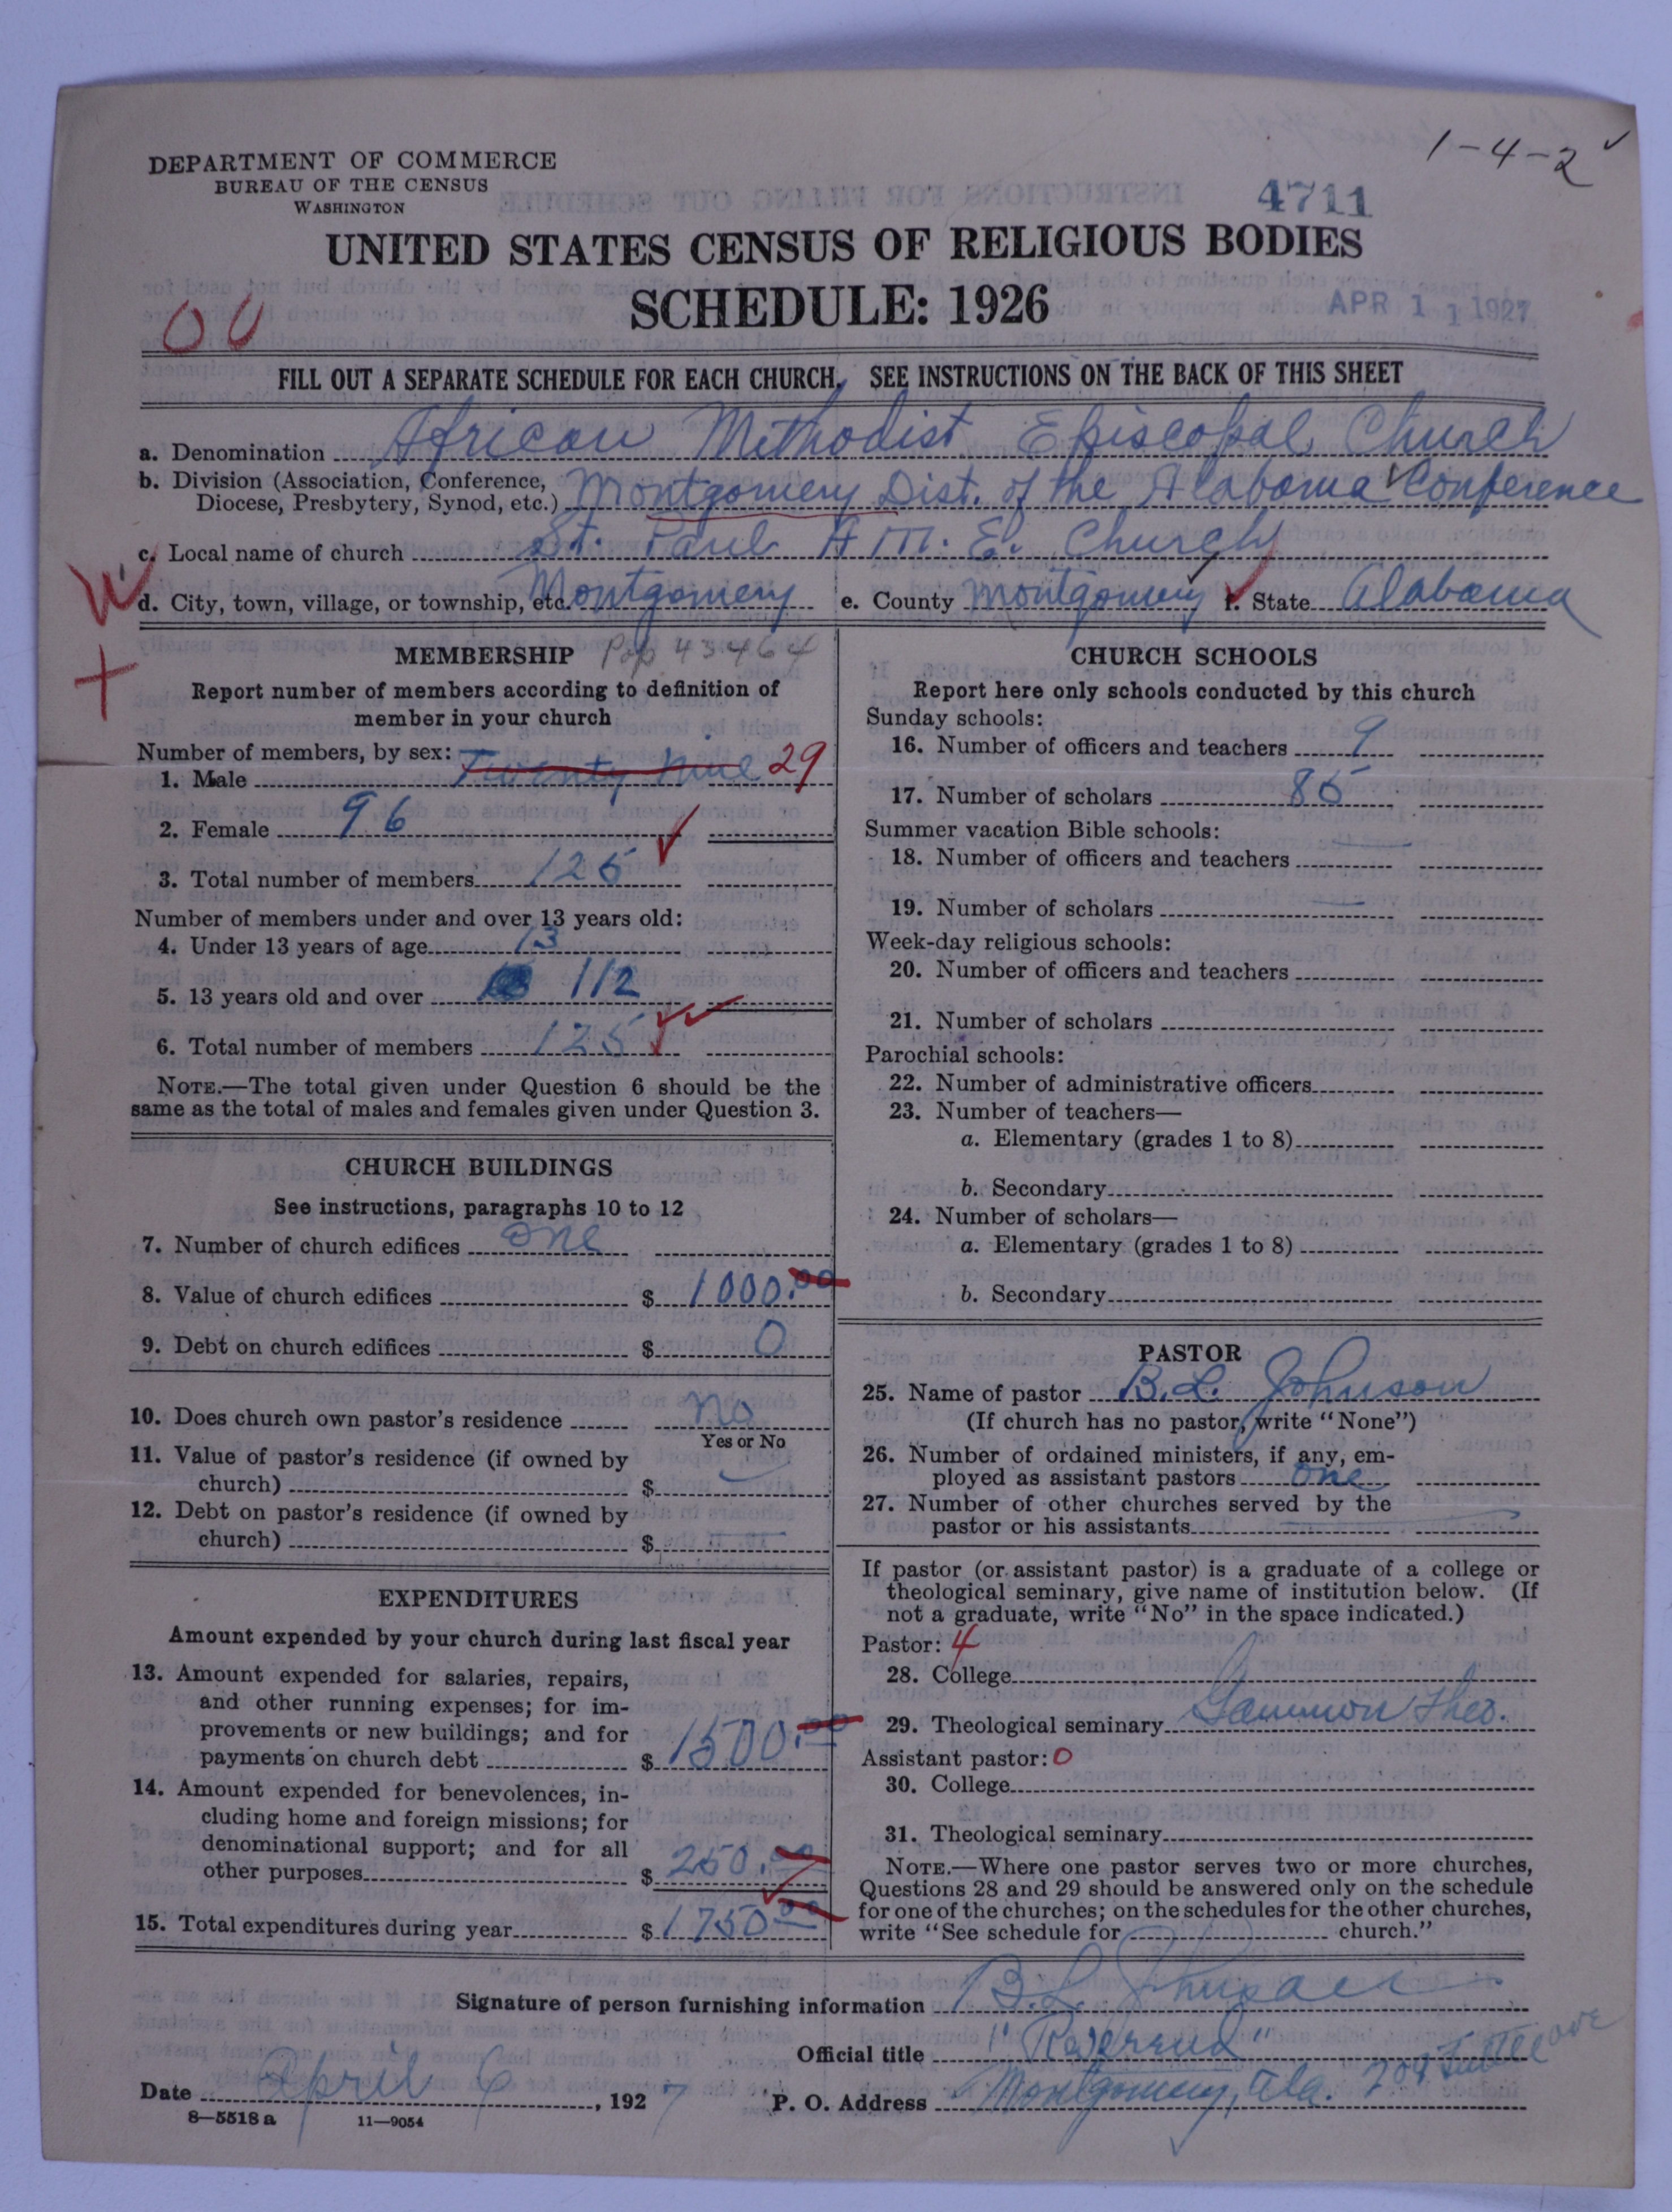 1-4-2
DEPARTMENT OF COMMERCE
BUREAU OF THE CENSUS
WASHINGTON
4711
UNITED STATES CENSUS OF RELIGIOUS BODIES
SCHEDULE: 1926
APR 11 1927
OU
FILL OUT A SEPARATE SCHEDULE FOR EACH CHURCH. SEE INSTRUCTIONS ON THE BACK OF THIS SHEET
a. Denomination African Methodist Episcopal Church
b. Division (Association, Conference,
Diocese, Presbytery, Synod, etc.) Montgomery Dist. of the Alabama Conference
c. Local name of church St. Paul A.M.E. Church
d. City, town, village, or township, etc. Montgomery e. County Montgomery f. State Alabama
MEMBERSHIP Pop 43464
Report number of members according to definition of
member in your church
Number of members, by sex:
1. Male Twenty Nine 29
2. Female 96
3. Total number of members 125
Number of members under and over 13 years old:
4. Under 13 years of age 13
5. 13 years old and over 112
6. Total number of members 125
NOTE.—The total given under Question 6 should be the
same as the total of males and females given under Question 3.
CHURCH BUILDINGS
See instructions, paragraphs 10 to 12
7. Number of church edifices one
8. Value of church edifices $ 1000.00
9. Debt on church edifices $ 0
10. Does church own pastor's residence No
Yes or No
11. Value of pastor's residence (if owned by
church) $
12. Debt on pastor's residence (if owned by
church) $
EXPENDITURES
Amount expended by your church during last fiscal year
13. Amount expended for salaries, repairs,
and other running expenses; for im-
provements or new buildings; and for
payments on church debt $ 1500.00
14. Amount expended for benevolences, in-
cluding home and foreign missions; for
denominational support; and for all
other purposes $ 250.00
15. Total expenditures during year $ 1750.00
CHURCH SCHOOLS
Report here only schools conducted by this church
Sunday schools:
16. Number of officers and teachers 9
17. Number of scholars 85
Summer vacation Bible schools:
18. Number of officers and teachers
19. Number of scholars
Week-day religious schools:
20. Number of officers and teachers
21. Number of scholars
Parochial schools:
22. Number of administrative officers
23. Number of teachers—
a. Elementary (grades 1 to 8)
b. Secondary
24. Number of scholars—
a. Elementary (grades 1 to 8)
b. Secondary
PASTOR
25. Name of pastor B.L. Johnson
(If church has no pastor, write "None")
26. Number of ordained ministers, if any, em-
ployed as assistant pastors one
27. Number of other churches served by the
pastor or his assistants
If pastor (or assistant pastor) is a graduate of a college or
theological seminary, give name of institution below. (If
not a graduate, write "No" in the space indicated.)
Pastor: 4
28. College
29. Theological seminary Gammon Theo.
Assistant pastor: 0
30. College
31. Theological seminary
NOTE.—Where one pastor serves two or more churches,
Questions 28 and 29 should be answered only on the schedule
for one of the churches; on the schedules for the other churches,
write "See schedule for church."
Signature of person furnishing information B.L. Johnson
Official title "Reverend"
Date April 6, 1927 P. O. Address Montgomery, Ala. ave
8—5518 a 11—9054